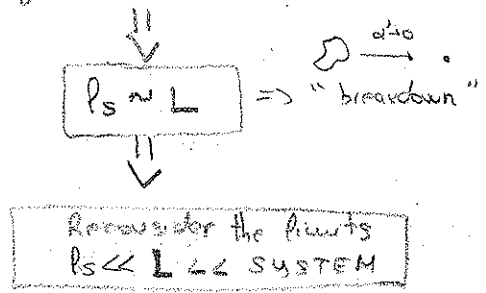 α'→0
ls ~ L => "breakdown"
Reconsider the limits
ls << L << SYSTEM